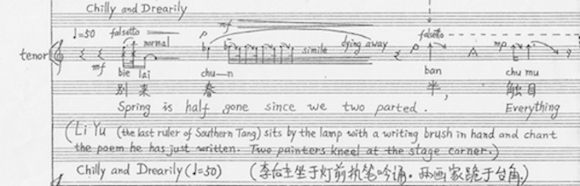 Chilly and Drearily
mf
♩=50 falsetto p falsetto
normal simile dying away
tenor mf mp
bie lai chu—n ban chu mu
别 来 春 半, 触目
Spring is half gone since we two parted. Everything
(Li Yu (the last ruler of Southern Tang) sits by the lamp with a writing brush in hand and chant
the poem he has just written. Two painters kneel at the stage corner.)
Chilly and Drearily (♩=50) (李后主坐于灯前执笔吟诵. 两画家跪于台角.)